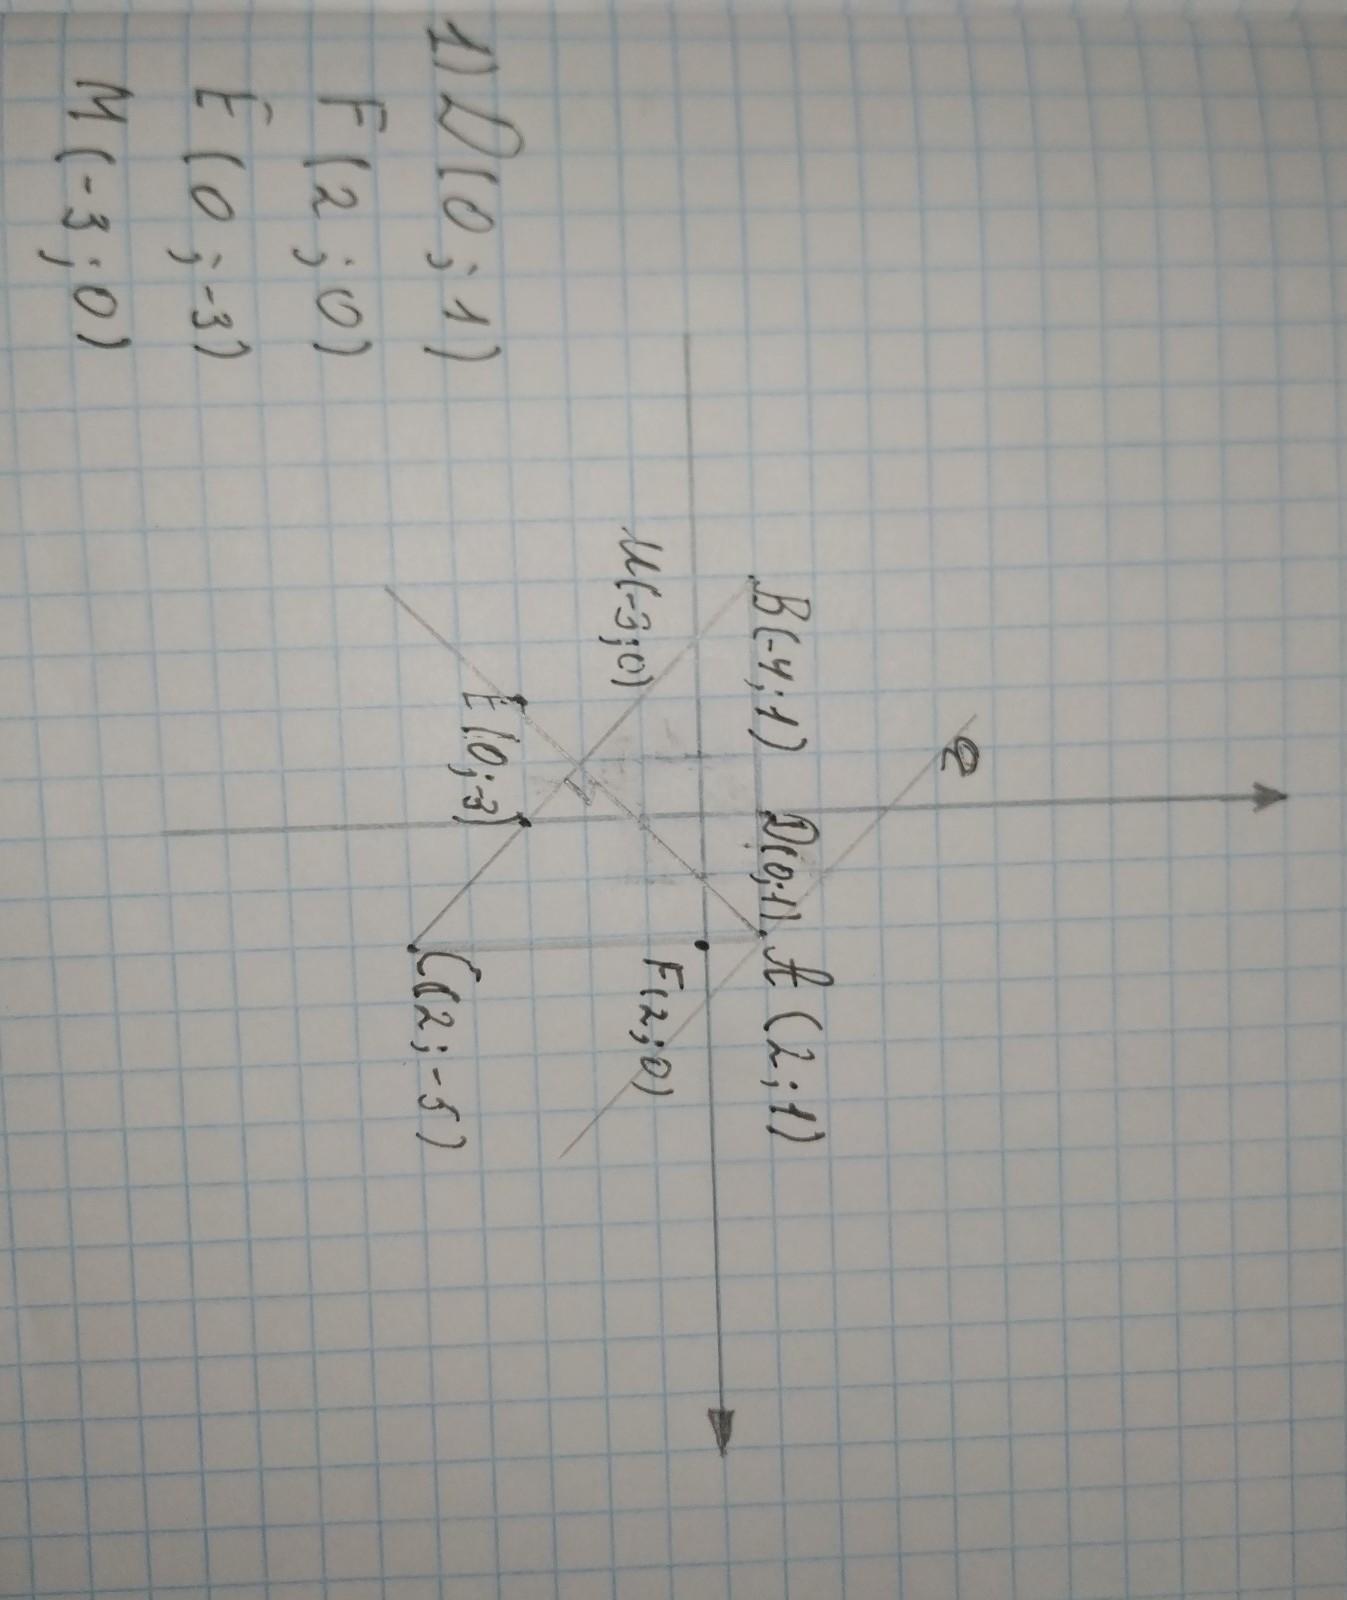 1) D(0;1)
F(2;0)
E(0;-3)
M(-3;0)
B(-4;1)
D(0;1)
A(2;1)
M(-3;0)
F(2;0)
E(0;-3)
C(2;-5)